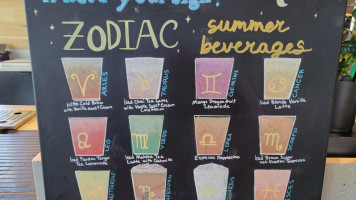 your sign?
ZODIAC
summer
beverages
ARIES
TAURUS
GEMINI
CANCER
Nitro Cold Brew
with Vanilla Sweet Cream
Iced Chai Tea Latte
with Vanilla Sweet Cream
Cold Foam
Mango Dragonfruit
Lemonade
Iced Blonde Vanilla
Latte
LEO
VIRGO
LIBRA
SCORPIO
Iced Passion Tango
Tea Lemonade
Iced Matcha Tea
Latte with Oatmilk
Espresso Frappuccino
Iced Brown Sugar
Oatmilk Shaken Espresso
SAGITTARIUS
CAPRICORN
AQUARIUS
PISCES